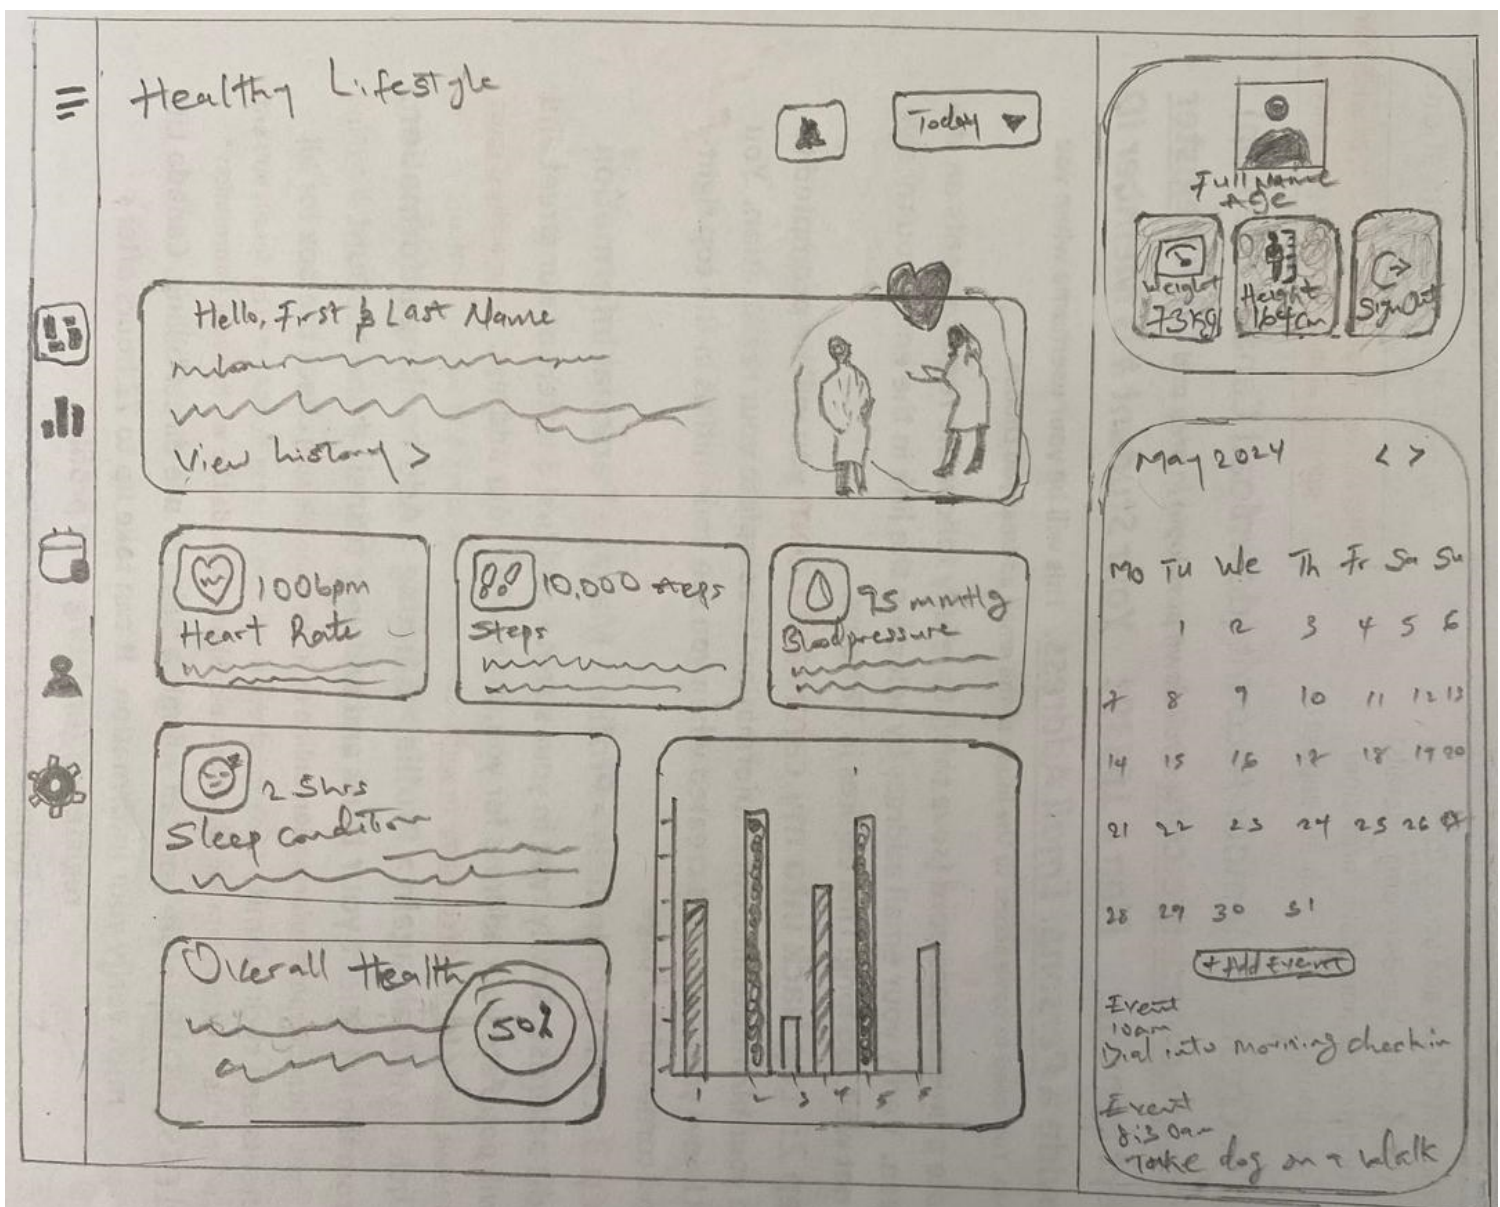 Healthy Lifestyle
Today
Hello, First & Last Name
View history >
100bpm
Heart Rate
10,000 steps
Steps
95 mmHg
Bloodpressure
Sleep condition
Overall Health
50%
1 2 3 4 5 6
Full Name
Age
Weight
73Kg
Height
164cm
Sign Out
May 2024 < >
Mo Tu We Th Fr Sa Su
1 2 3 4 5 6
7 8 9 10 11 12 13
14 15 16 17 18 19 20
21 22 23 24 25 26
28 29 30 31
+ Add Event
Event
10am
Dial into morning checkin
Event
Take dog on a walk